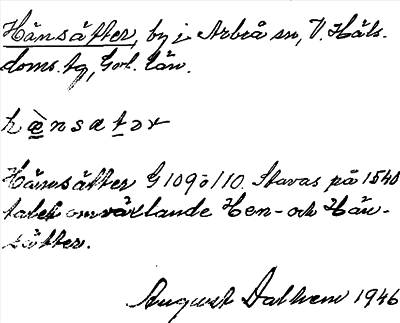 Hänsätter, by i Arbrå sn, V. Häls.
doms. tg, Gvl. län.
hæ̀nsatər
Hännsätter G 109 ō 110. Stavas på 1540
talet omväxlande Hen- och Hän-
sätter.
August Dalhem 1946